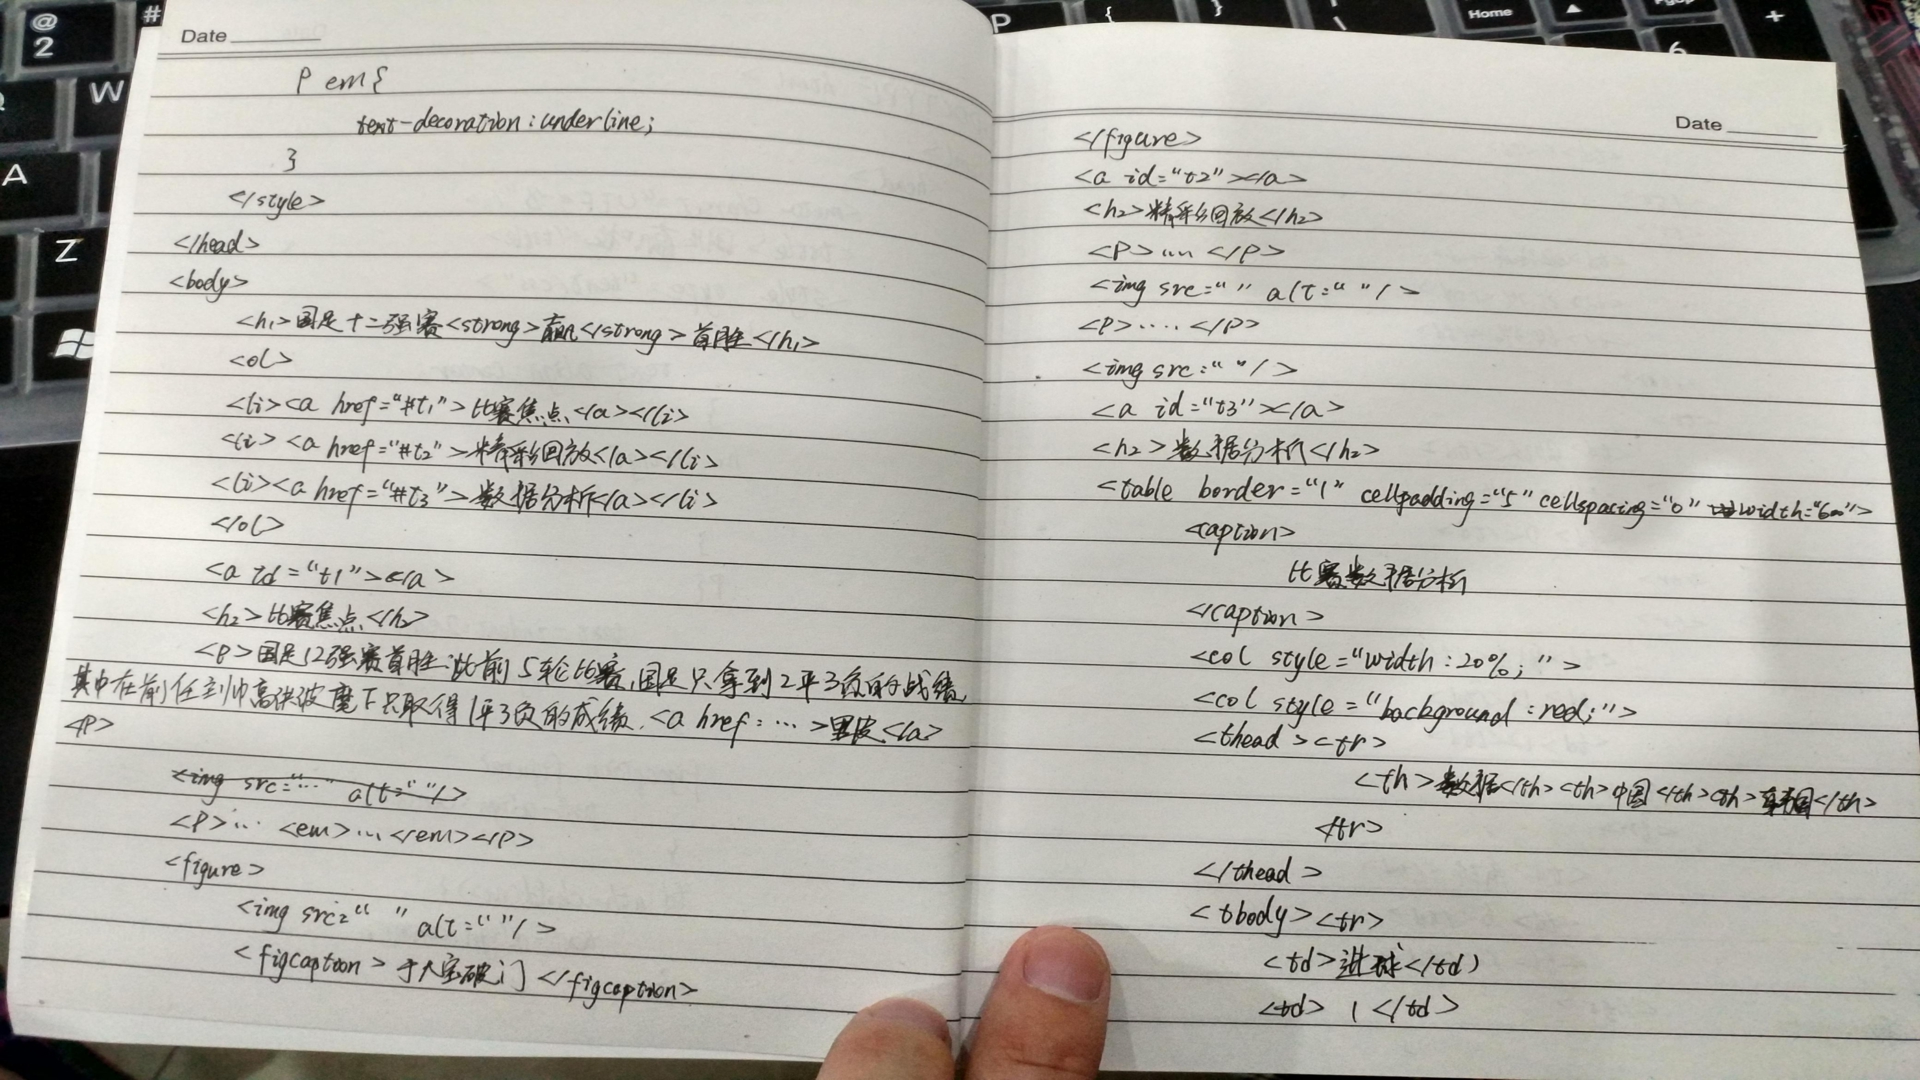 Date
p em{
text-decoration:underline;
}
</style>
</head>
<body>
<h1>国足十二强赛<strong>赢</strong>首胜</h1>
<ol>
<li><a href="#t1">比赛焦点</a></li>
<li><a href="#t2">精彩回放</a></li>
<li><a href="#t3">数据分析</a></li>
</ol>
<a id="t1"></a>
<h2>比赛焦点</h2>
<p>国足12强赛首胜.此前5轮比赛,国足只拿到2平3负的战绩,
其中在前任主帅高洪波麾下只取得1平3负的成绩.<a href:…>里皮</a>
<p>
<img src="…" alt=""/>
<p>… <em>…</em></p>
<figure>
<img src="  " alt=" "/>
<figcaption>于大宝破门</figcaption>
Date
</figure>
<a id="t2"></a>
<h2>精彩回放</h2>
<p>….</p>
<img src=" " alt=" "/>
<p>….</p>
<img src=" "/>
<a id="t3"></a>
<h2>数据分析</h2>
<table border="1" cellpadding="5" cellspacing="0" width="600">
<caption>
比赛数据分析
</caption>
<col style="width:20%;">
<col style="background:red;">
<thead><tr>
<th>数据</th><th>中国</th><th></th>
</tr>
</thead>
<tbody><tr>
<td>进球</td>
<td>1</td>
@
2
#
W
A
Z
P
{
}
\
Home
6
+